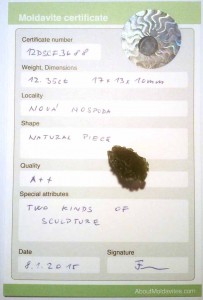 Moldavite certificate
Certificate number
12DSCF3488
Weight, Dimensions
12.35ct 17x13x10mm
Locality
NOVÁ HOSPODA
Shape
NATURAL PIECE
Quality
A++
Special attributes
TWO KINDS OF
SCULPTURE
Date
Signature
8.1.2015
AboutMoldavites.com